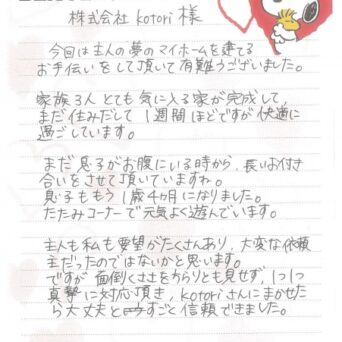 株式会社 kotori 様
今回は主人の夢のマイホームを建てる
お手伝いをして頂いて有難うございました。
家族3人とても気に入る家が完成して、
まだ住みだして1週間ほどですが快適に
過ごしています。
まだ息子がお腹にいる時から、長いお付き
合いをさせて頂いていますね。
息子ももう1歳4ヶ月になりました。
たたみコーナーで元気よく遊んでいます。
主人も私も要望がたくさんあり、大変な依頼
主だったのではないかと思います。
ですが面倒くささをちらりとも見せず、1つ1つ
真摯に対応頂き、kotoriさんにまかせた
ら大丈夫とすごと信頼できました。